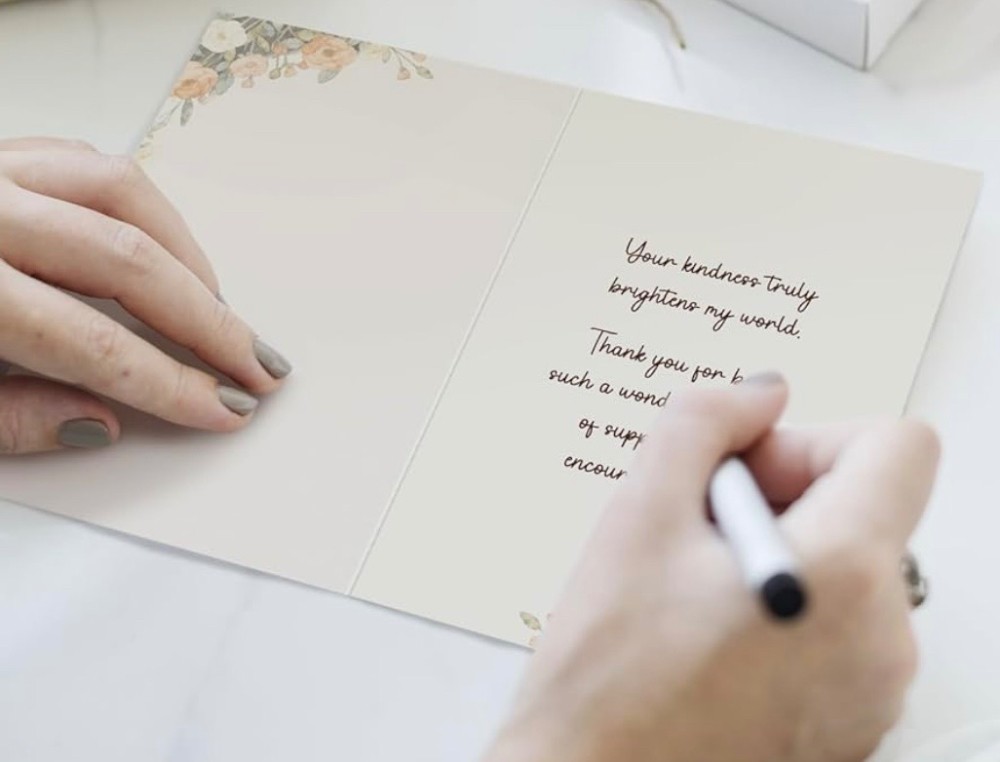 Your kindness truly
brightens my world.
Thank you for b
such a wond
of supp
encour